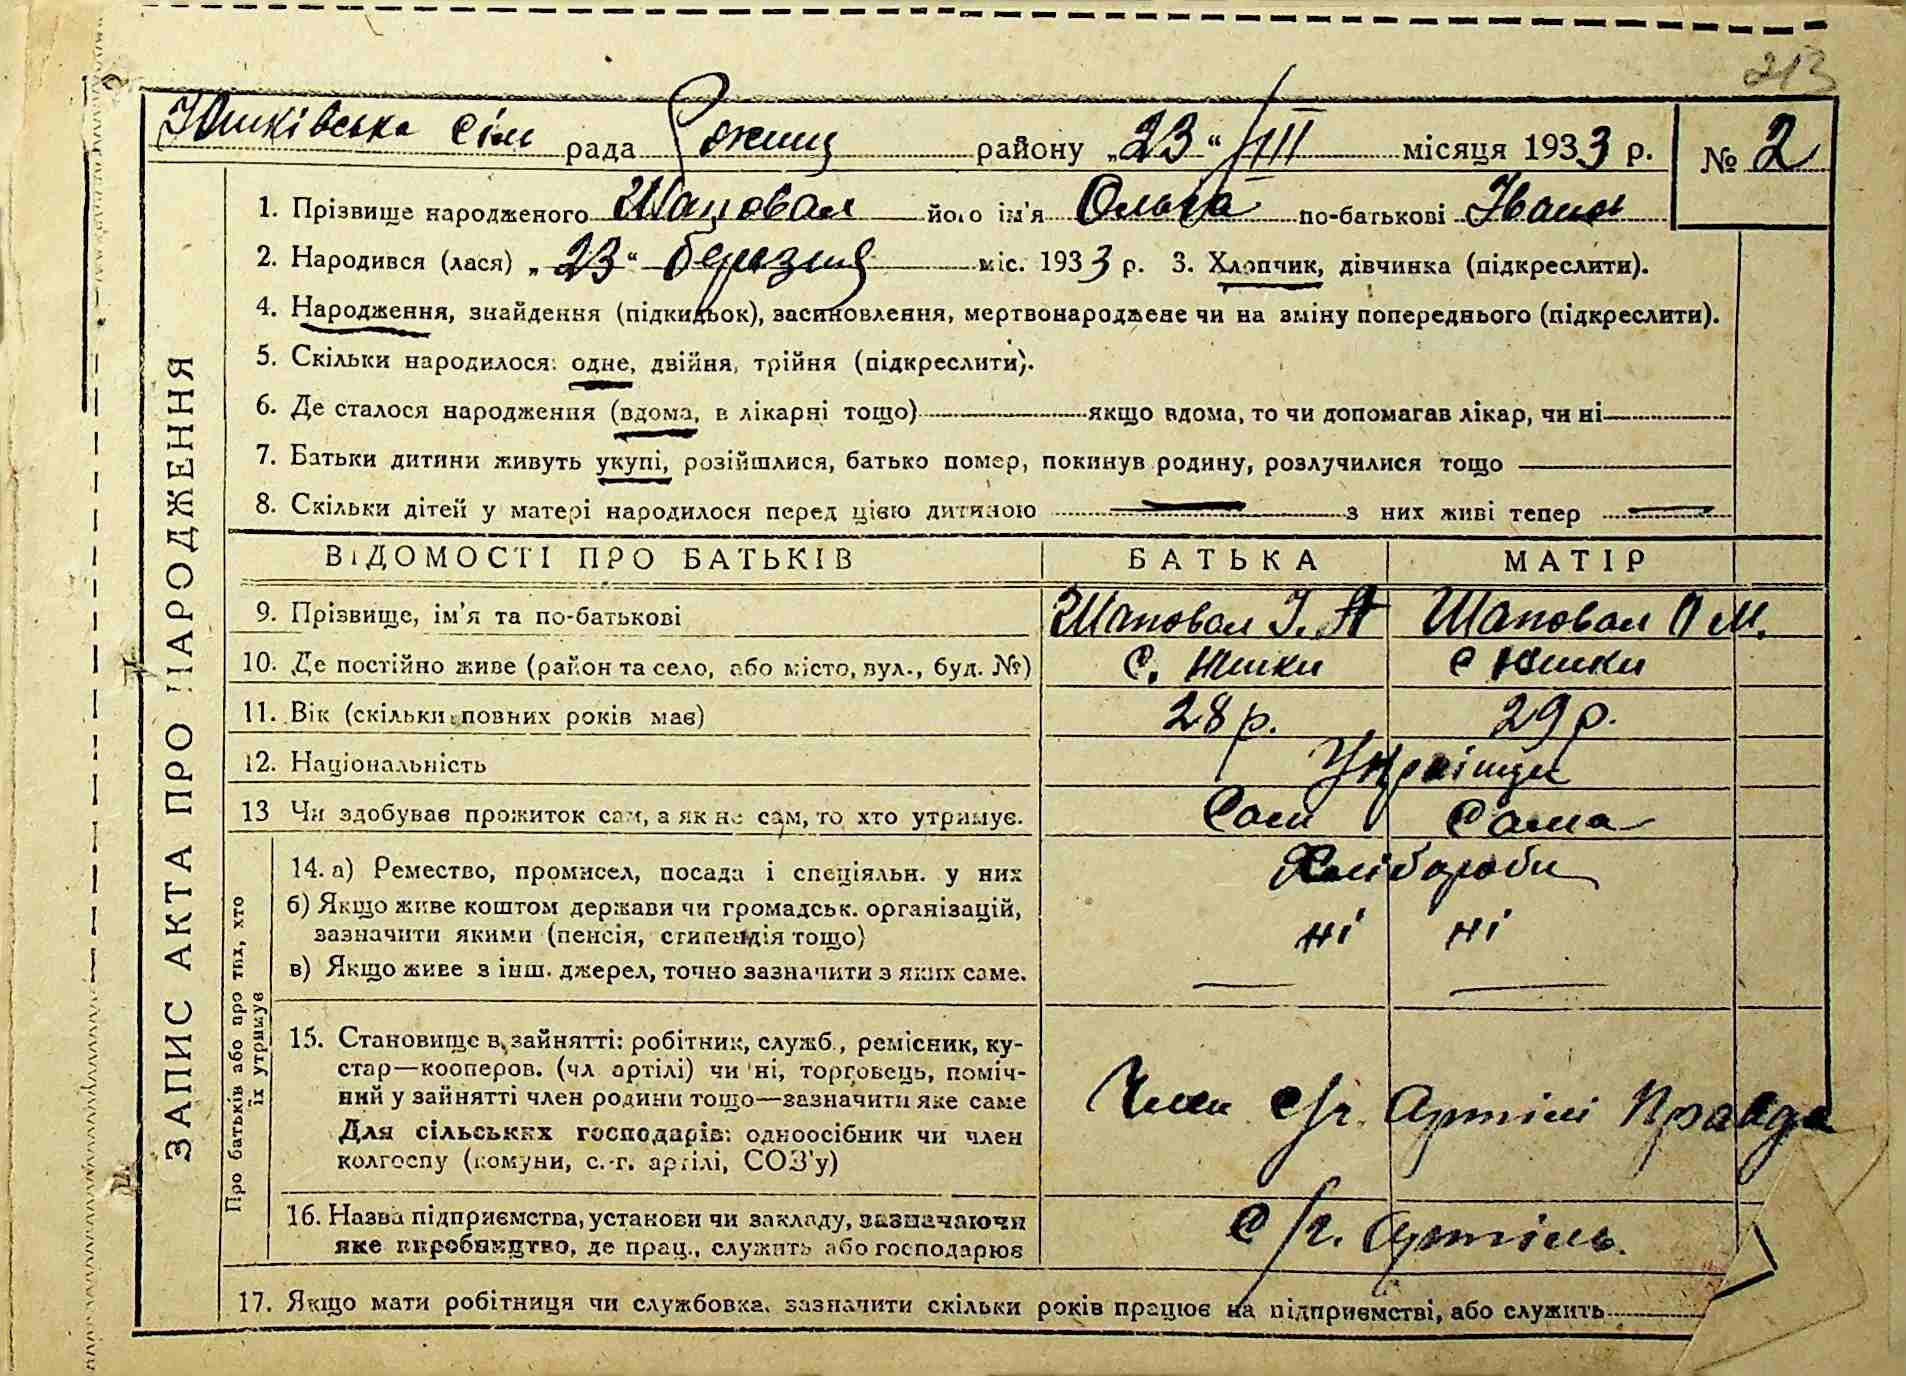 213
Юшківська сіл рада Ржищ району „23“ /III місяця 1933 р. № 2
1. Прізвище народженого Шаповал його ім'я Ольга по-батькові Іванов
2. Народився (лася) „23“ березня міс. 1933 р. 3. Хлопчик, дівчинка (підкреслити).
4. Народження, знайдення (підкидьок), засиновлення, мертвонароджене чи на зміну попереднього (підкреслити).
5. Скільки народилося: одне, двійня, трійня (підкреслити).
6. Де сталося народження (вдома, в лікарні тощо) якщо вдома, то чи допомагав лікар, чи ні
7. Батьки дитини живуть укупі, розійшлися, батько помер, покинув родину, розлучилися тощо
8. Скільки дітей у матері народилося перед цією дитиною — з них живі тепер —
ЗАПИС АКТА ПРО НАРОДЖЕННЯ
ВІДОМОСТІ ПРО БАТЬКІВ БАТЬКА МАТІР
9. Прізвище, ім'я та по-батькові Шаповал І. А Шаповал О М.
10. Де постійно живе (район та село, або місто, вул., буд. №) с. Юшки с Юшки
11. Вік (скільки повних років має) 28 р. 29 р.
12. Національність Українци
13 Чи здобуває прожиток сам, а як не сам, то хто утримує. Сам Сама
Про батьків або про тих, хто
їх утримує
14. а) Ремество, промисел, посада і спеціяльн. у них Хлібороби
б) Якщо живе коштом держави чи громадськ. організацій,
зазначити якими (пенсія, стипендія тощо) ні ні
в) Якщо живе з інш. джерел, точно зазначити з яких саме. — —
15. Становище в зайнятті: робітник, служб., ремісник, ку-
стар—кооперов. (чл артілі) чи ні, торговець, поміч-
ний у зайнятті член родини тощо—зазначити яке саме
Для сільських господарів: одноосібник чи член
колгоспу (комуни, с.-г. артілі, СОЗ'у)
Член с/г. Артілі Правда
16. Назва підприємства, установи чи закладу, зазначаючи
яке виробництво, де прац., служить або господарює
с/г. Артіль.
17. Якщо мати робітниця чи службовка, зазначити скільки років працює на підприємстві, або служить